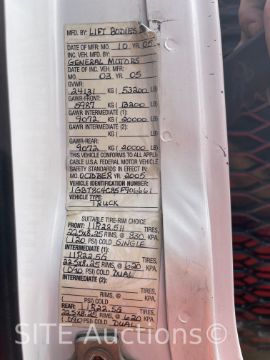 MFD. BY: LIFT BODIES
DATE OF MFD. MO. 10 YR. 05
INC. VEH. MFD. BY:
GENERAL MOTORS
DATE OF INC. VEH. MFD.
MO. 03 YR. 05
GVWR
24131 KG ( 53200 LB)
GAWR-FRONT:
5987 KG ( 13200 LB)
GAWR INTERMEDIATE (1)
9072 KG ( 20000 LB)
GAWR INTERMEDIATE (2)
KG ( LB)
GAWR-REAR:
9072 KG ( 20000 LB)
THIS VEHICLE CONFORMS TO ALL
CABLE U.S.A. FEDERAL MOTOR VEHICLE
SAFETY STANDARDS IN EFFECT IN
MO. OCTOBER 2005
VEHICLE IDENTIFICATION NUMBER:
VEHICLE TYPE:
TRUCK
SUITABLE TIRE-RIM CHOICE
FRONT: 11R22.5H TIRES
22.5x8.25 RIMS, @ 830 KPA
(120 PSI) COLD SINGLE
INTERMEDIATE (1):
11R22.5G TIRES,
22.5x8.25 RIMS, @ 620 KPA
(090 PSI) COLD DUAL
INTERMEDIATE (2):
TIRES,
RIMS, @ KPA
( PSI) COLD
REAR: 11R22.5G TIRES
22.5x8.25 RIMS, @ 620 KPA
(090 PSI) COLD DUAL
SITE Auctions.com